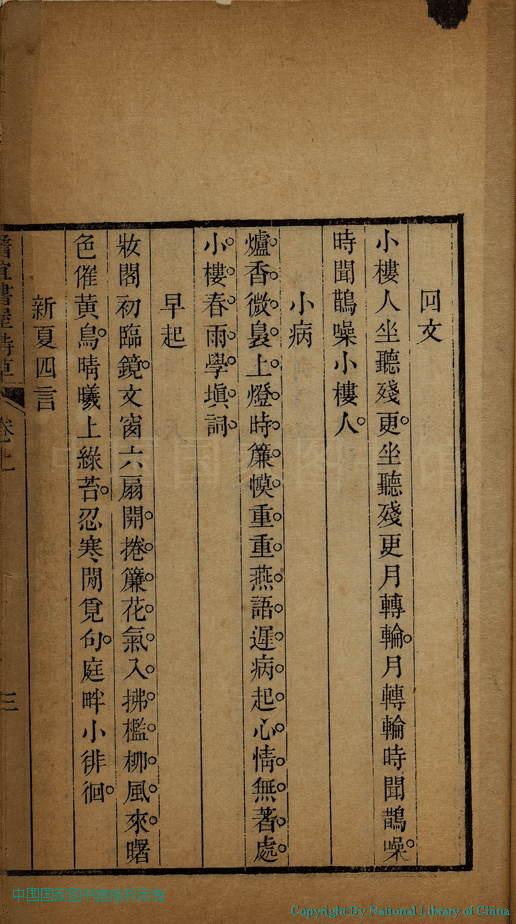 回文
小樓人坐聽殘更坐聽殘更月轉輪月轉輪時聞鵲噪
時聞鵲噪小樓人
小病
爐香微裊上燈時簾幙重重燕語遲病起心情無著處
小樓春雨學塡詞
早起
妝閣初臨鏡文窗六扇開捲簾花氣入拂檻柳風來曙
色催黃鳥晴曦上綠苔忍寒閒覓句庭畔小徘徊
新夏四言
書屋詩草 卷上 三
Copyright By National Library of China